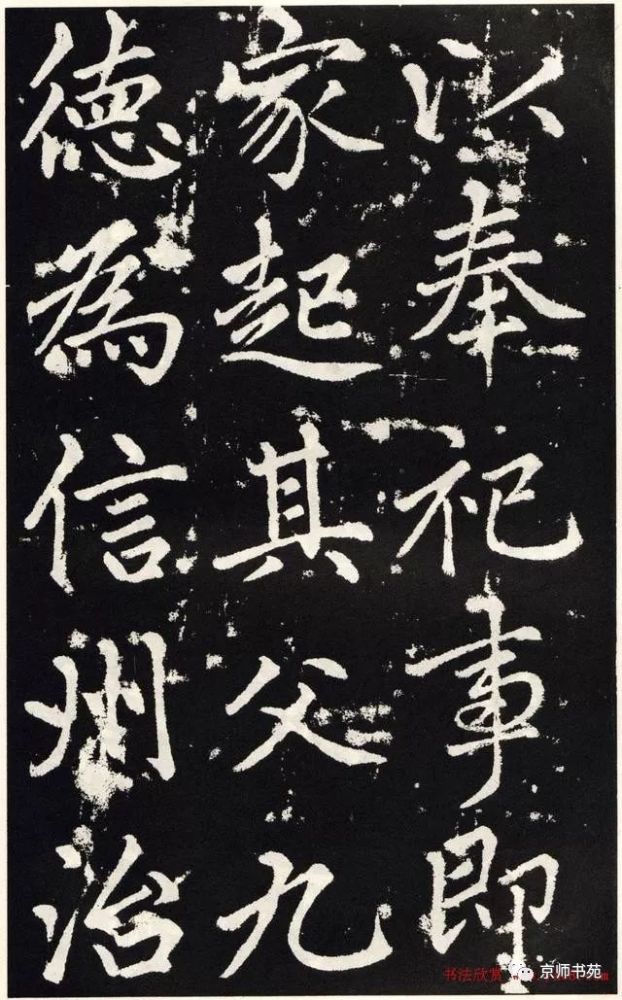 以奉祀事即
家起其父九
德為信州治
书法欣赏
京师书苑